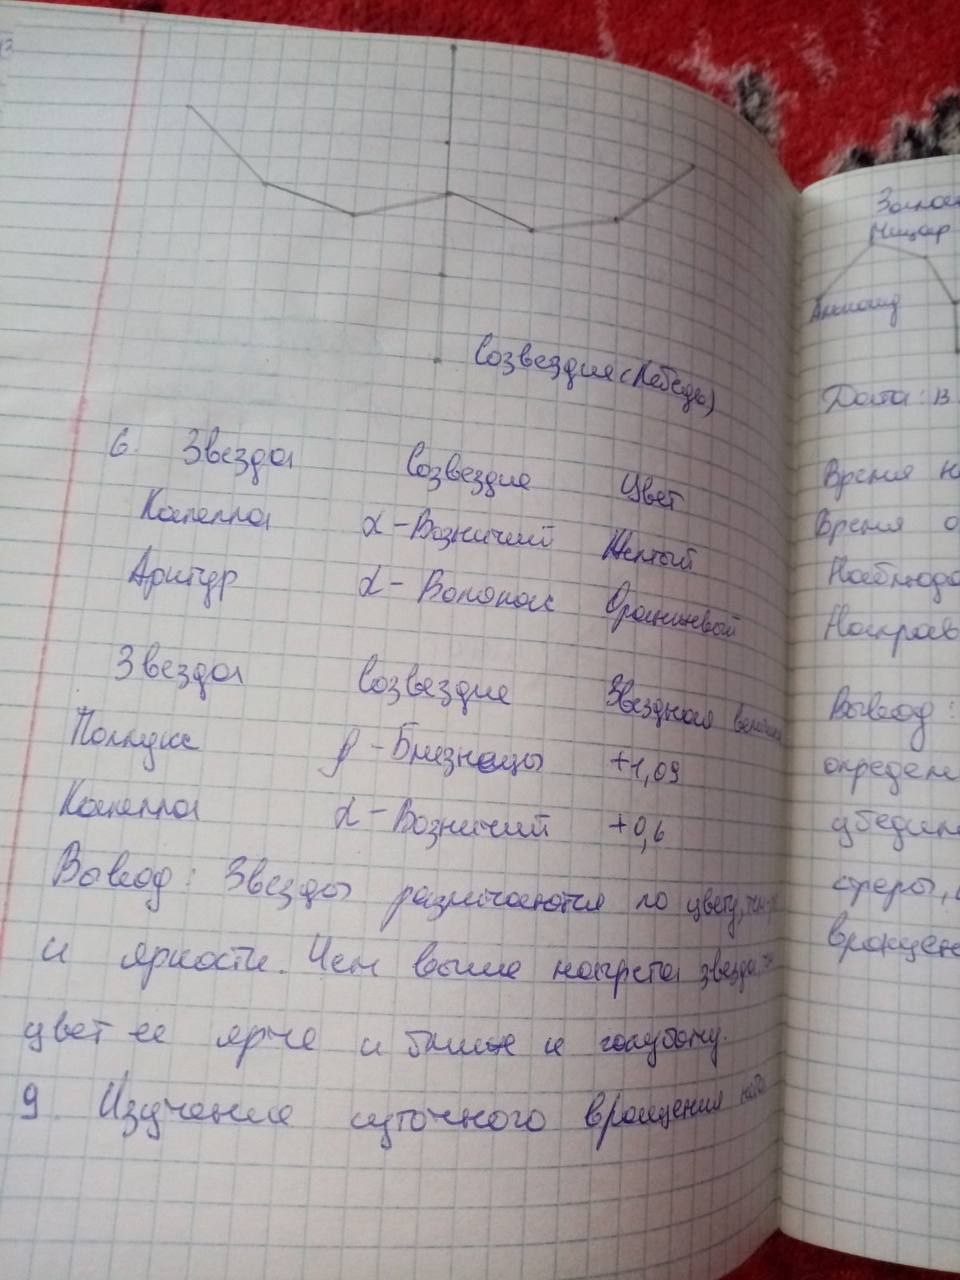 Созвездие (Лебедь)
6. Звезда Созвездие Цвет
Капелла α - Возничий Желтый
Арктур α - Волопас Оранжевый
Звезда Созвездие Звездная величина
Поллукс β - Близнецы +1,09
Капелла α - Возничий +0,6
Вывод: Звезды различаются по цвету,
и яркости. Чем выше нагрета звезда
цвет ее ярче и ближе к голубому.
9. Изучение суточного вращения неба
Мицар
Дата: 13
Время н
Время о
Наблюда
Направ
Вывод:
определ
убедил
сферы,
вращен